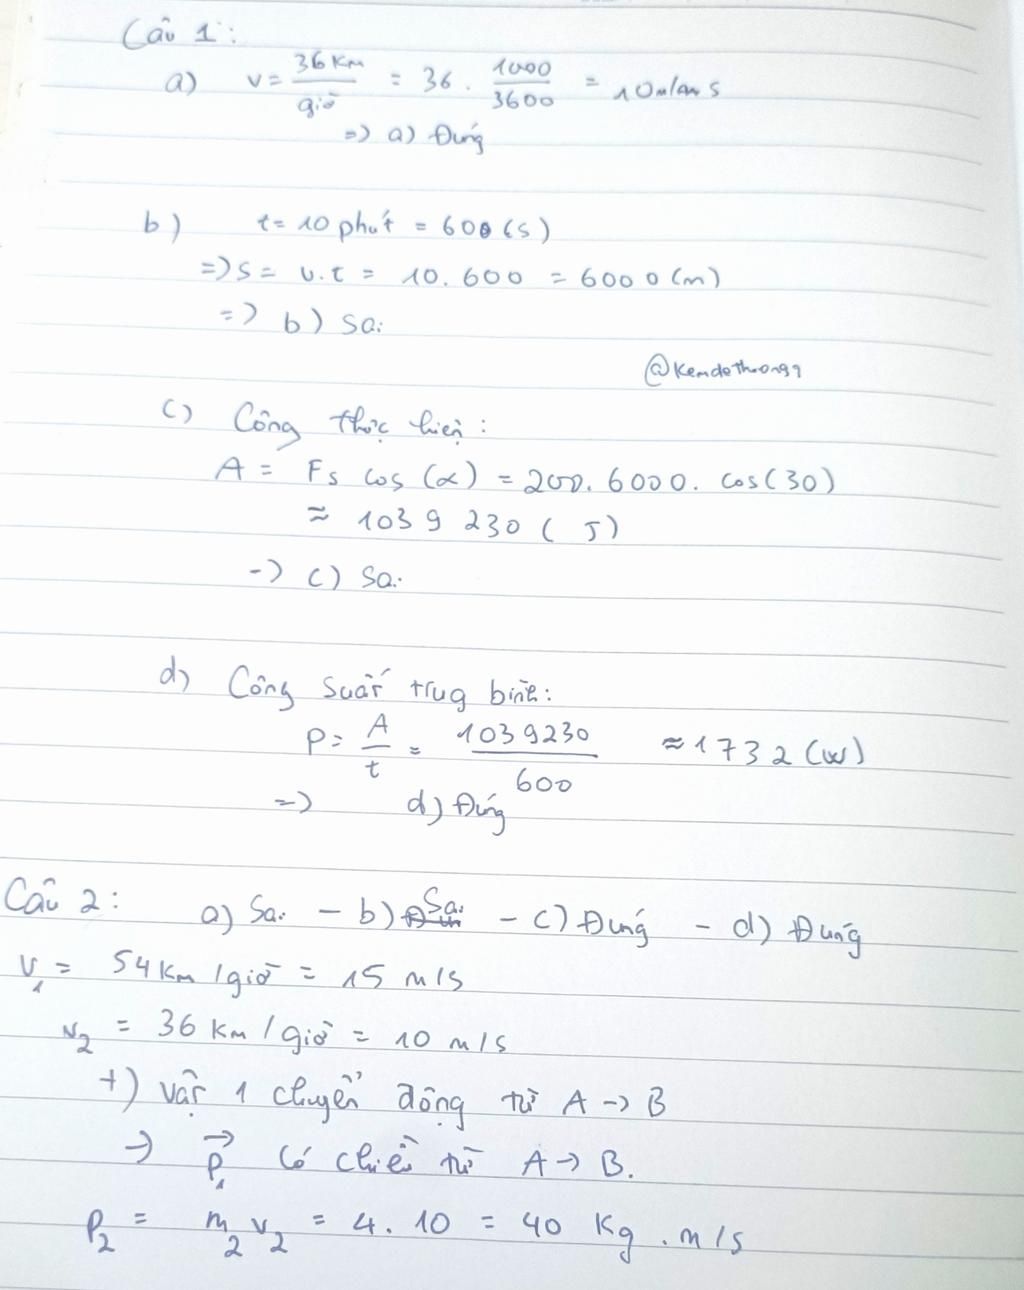 Câu 1:
a) v = 36 Km / giờ = 36 . 1000 / 3600 = 10 m/s
=> a) Đúng
b) t = 10 phút = 600 (s)
=> s = v.t = 10. 600 = 6000 (m)
=> b) Sai
@Kemdethoong9
c) Công thực hiện :
A = Fs cos (α) = 200. 6000. cos(30)
≈ 1039 230 ( J)
-> c) Sai
d) Công suất trug bình:
P = A / t = 1039230 / 600 ≈ 1732 (W)
=> d) Đúng
Câu 2: a) Sai - b) Sai - c) Đúng - d) Đúng
v₁ = 54 Km /giờ = 15 m/s
v₂ = 36 Km / giờ = 10 m/s
+) Vật 1 chuyển động từ A -> B
-> p⃗₁ có chiều từ A -> B.
P₂ = m₂ v₂ = 4. 10 = 40 Kg . m/s